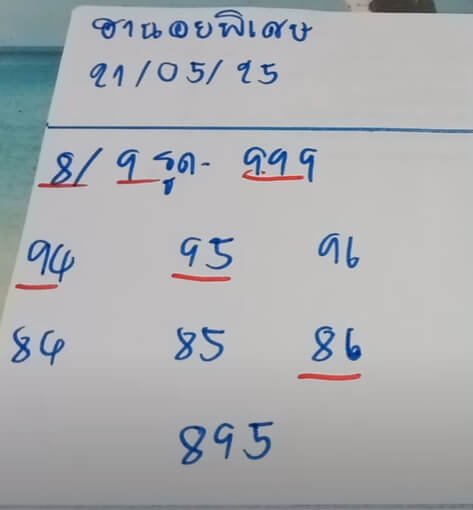 ฮานอยพิเศษ
21/05/25
8/9 รูด- 999
94 95 96
84 85 86
895